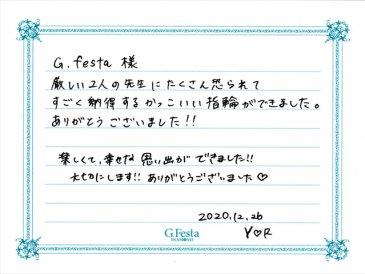 G.festa 様
厳しい2人の先生にたくさん怒られて
すごく納得するかっこいい指輪ができました。
ありがとうございました!!
楽しくて、幸せな思い出ができました!!
大切にします!! ありがとうございました♡
2020.12.26
Y♡R
G.Festa
DIAMOND